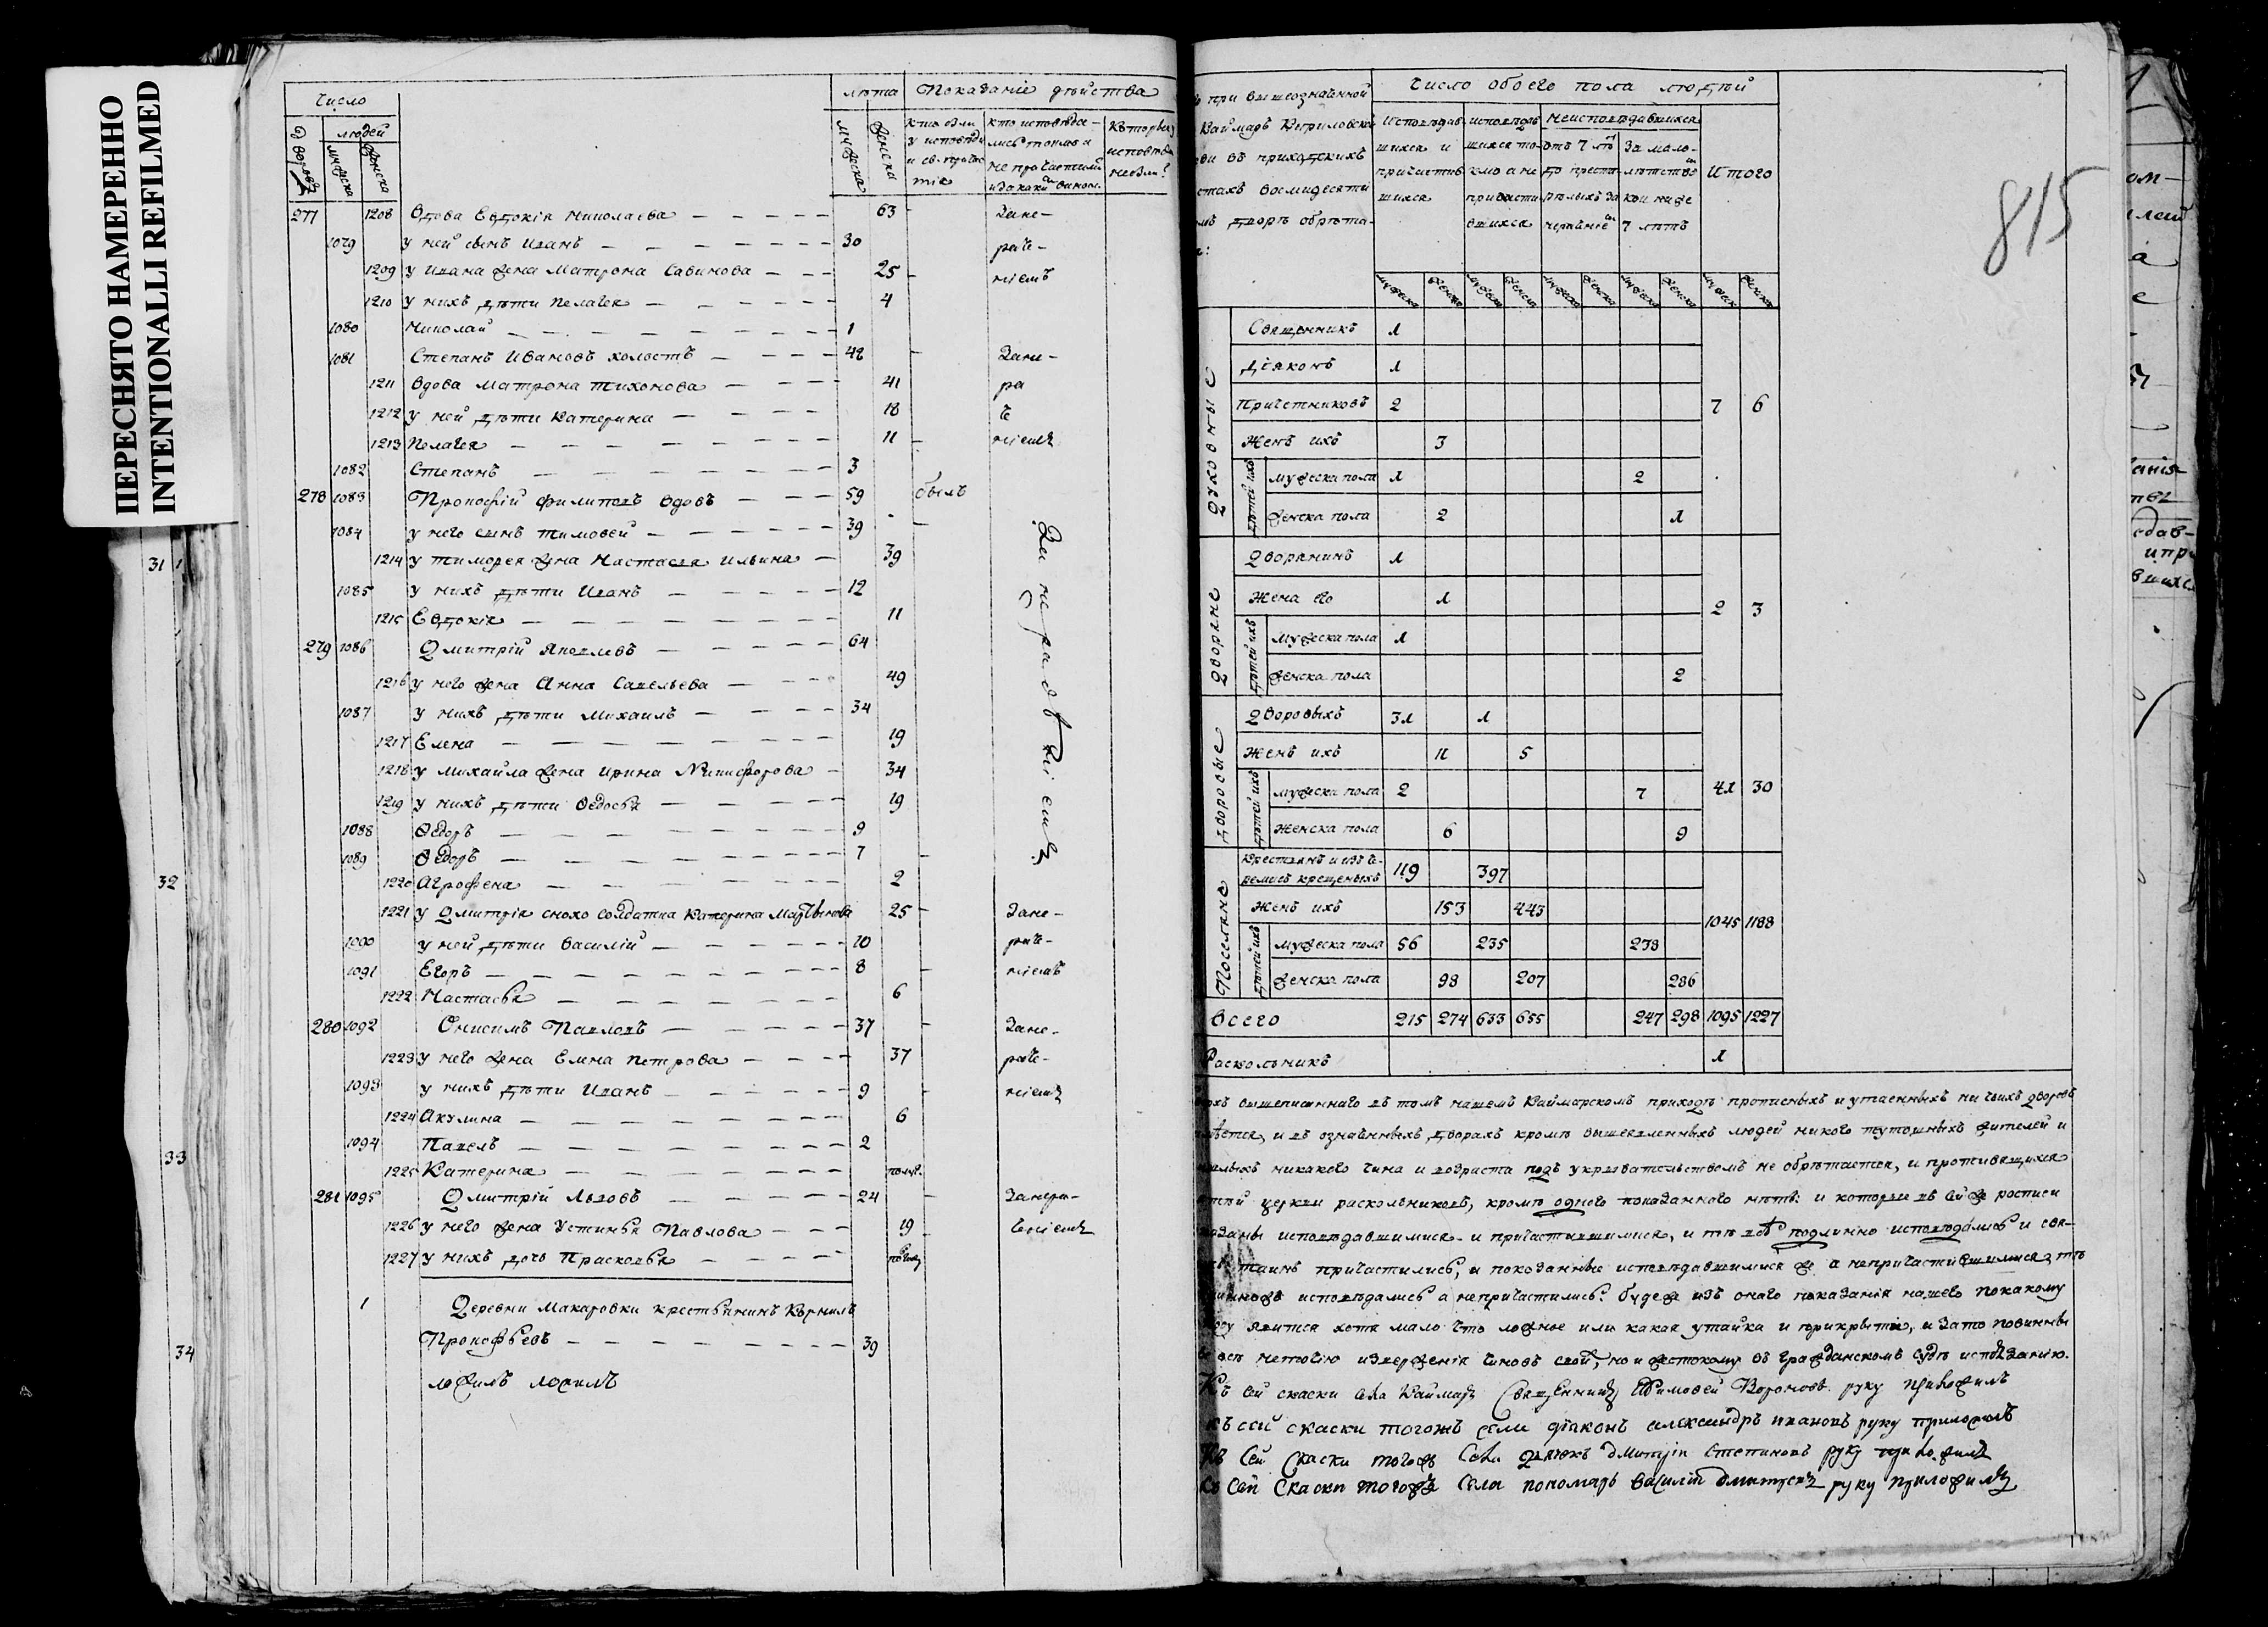 ПЕРЕСНЯТО НАМЕРЕННО
INTENTIONALLI REFILMED
число
лѣта Показаніе дѣйства
дворовъ людей
мужеска женска
мужеска женска
кто были у исповѣди и св. прича-стія
кто исповѣда-лись токмо а не причастили
которые у исповѣди не были?
277 1208 Вдова Евдокія Николаева 63 Зане-
1079 у ней сынъ Иванъ 30 раче-
1209 у Ивана жена Матрона Савинова 25 ніемъ
1210 у нихъ дѣти Пелагея 4
1080 Николай 1
1081 Степанъ Ивановъ холостъ 42 Зане-
1211 Вдова Матрона Тихонова 41 ра
1212 у ней дѣти Катерина 18 че
1213 Пелагея 11 ніемъ
1082 Степанъ 3
278 1083 Прокофій Филиповъ вдовъ 59 былъ
1084 у него сынъ Тимофей 39
1214 у Тимофея жена Настасья Ильина 39
1085 у нихъ дѣти Иванъ 12
1215 Евдокія 11
За нерачѣніемъ
279 1086 Дмитрій Яковлевъ 64
1216 у него жена Анна Савельева 49
1087 у нихъ дѣти Михаилъ 34
1217 Елена 19
1218 у Михайла жена Ирина Никифорова 34
1219 у нихъ дѣти Федосья 19
1088 Федоръ 9
1089 Федоръ 7
1220 Агрофена 2
1221 у Дмитрія сноха солдатка Катерина Мартынова 25 Зане-
1090 у ней дѣти Василій 10 раче-
1091 Егоръ 8 ніемъ
1222 Настасья 6
280 1092 Онисимъ Павловъ 37 Зане-
1223 у него жена Елена Петрова 37 раче-
1093 у нихъ дѣти Иванъ 9 ніемъ
1224 Акулина 6
1094 Павелъ 2
1225 Катерина полуг.
281 1095 Дмитрій Львовъ 24 Занера-
1226 у него жена Устинья Павлова 19 ченіемъ
1227 у нихъ дочь Прасковья
1 Деревни Макаровки крестьянинъ Корнилъ
Прокофьевъ 39
31
32
33
34
815
при вышеозначенной
Каймарѣ Кириловской
въ приходскихъ
восмидесяти
дворѣ обрѣта-
Число обоего пола людей
Исповѣдав-шихся и причастив-шихся
исповѣдав-шихся то-кмо а не причасти-вшихся
неисповѣдавшихся
отъ 7 лѣ до преста-рѣлыхъ за нерачѣніе
За мало-лѣтство кои ниже 7 лѣтъ
Итого
мужеска женска мужеска женска мужеска женска мужеска женска мужеска женска
Духовные
Священникъ 1
Діаконъ 1
Причетниковъ 2 7 6
Женъ ихъ 3
дѣтей ихъ
мужеска пола 1 2
женска пола 2 1
Дворяне
Дворянинъ 1
Жена его 1 2 3
дѣтей ихъ
мужеска пола 1
женска пола 2
Дворовые
Дворовыхъ 31 1
Женъ ихъ 11 5
дѣтей ихъ
мужеска пола 2 7 41 30
Женска пола 6 9
Поселяне
Крестьянъ и изъ че-ремисъ крещеныхъ 119 397
Женъ ихъ 153 443 1045 1188
дѣтей ихъ
мужеска пола 56 235 238
женска пола 98 207 286
Всего 215 274 633 655 247 298 1095 1227
Раскольникъ 1
вышеписаннаго въ томъ нашемъ Каймарскомъ приходѣ прописныхъ и утаенныхъ ни чьихъ дворовъ
и въ означенныхъ дворахъ кромѣ вышеявленныхъ людей никого тутошныхъ жителей и
никакого чина и возраста подъ укрывательствомъ не обрѣтается, и противящихся
церкви раскольниковъ, кромѣ одного показанного нѣтъ: и которые въ сей же росписи
исповѣдавшимися и причастившимися, и тѣ всѣ подлинно исповѣдались и свя-
таинъ причастились, а показанные исповѣдавшимися же а непричастившимися, тѣ
исповѣдались а непричастились: буде изъ онаго показанія нашего покакому
явится хотя мало что ложное или какая утайка и прикрытіе, и зато повинны
изверженія чиновъ свой, но и жестокому въ гражданскомъ судѣ истязанію.
Къ сей скаски села Каймаръ Священникъ Тимофей Вороновъ руку приложилъ
къ сей скаски тогожъ села діаконъ александръ ивановъ руку приложилъ
Къ сей скаски тогожъ села дячокъ дмитрій Степановъ руку приложилъ
Къ сей скаски тогожъ села пономарь Василій дмитрей руку приложилъ